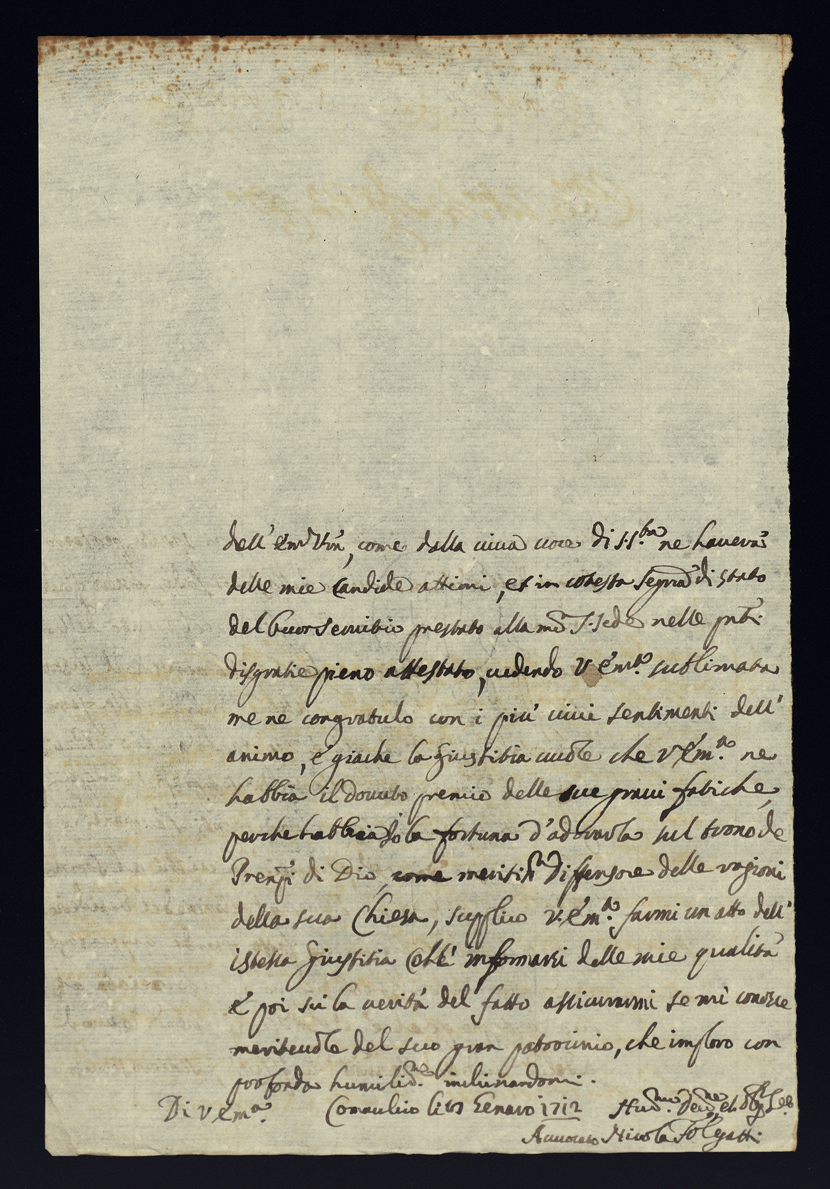 dell' Em.ᵃ V.ʳᵃ, come dalla viva voce di S. S.ᵗᵃ ne haverà
delle mie candide attioni, et in cotesta Segrãⁱᵃ di Stato
del buon servitio prestato alla mᵃ S. Sede nelle pñti
disgratie pieno attestato, vedendo V. Em.ᶻᵃ sublimata
me ne congratulo con i più vivi sentimenti dell'
animo, e giache la Giustitia vuole che V. Em.ᶻᵃ ne
habbia il dovuto premio delle sue gravi fatiche,
perche habbia Io la fortuna d'adorarla sul trono de
Prenp̃i di Dio, come meritiss.ᵒ diffensore delle ragioni
della sua Chiesa, supplico V. Em.ᶻᵃ farmi un atto dell'
istessa Giustitia coll' informarsi delle mie qualità
e poi su la verità del fatto assicurarmi se mi conosce
meritevole del suo gran patrocinio, che imploro con
profonda humilis.ᵐᵃ inchinandomi.
Di V. Em.ᶻᵃ Comachio li Genaro 1712 Hum.ᵐᵒ Dev.ᵐᵒ et Obl.ᵐᵒ Ser.
Avvocato Nicola Folegatti